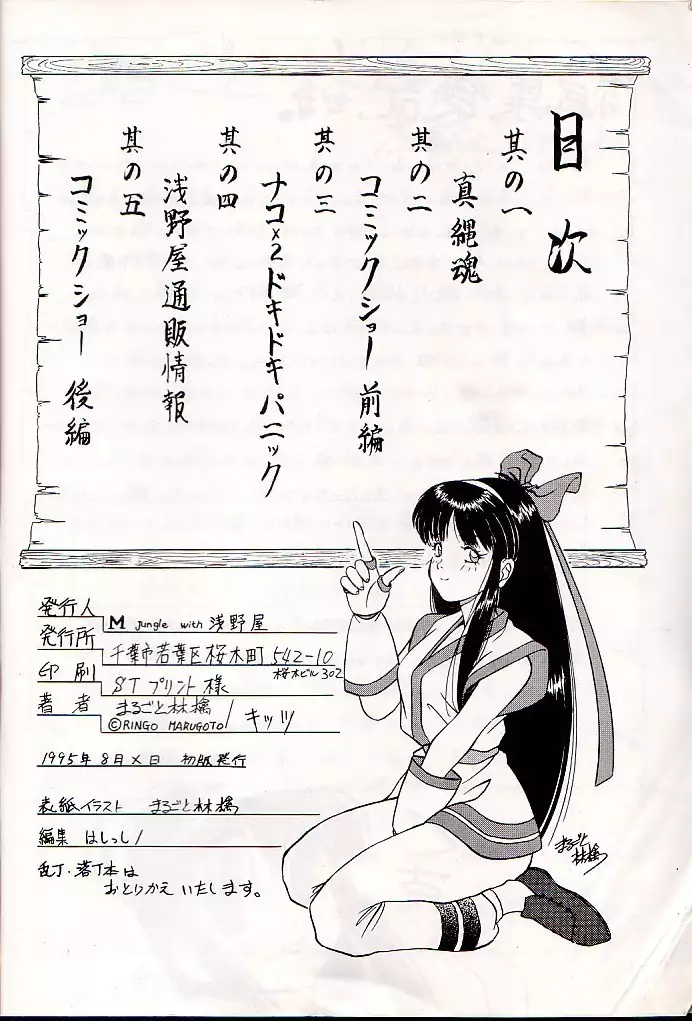 目次
其の一
真縄魂
其の二
コミックショー 前編
其の三
ナコ×2ドキドキパニック
其の四
浅野屋通販情報
其の五
コミックショー 後編
発行人 M Jungle with 浅野屋
発行所 千葉市若葉区桜木町542-10
桜木ビル302
印刷 STプリント様
著者 まるごと林檎/キッツ
©RINGO MARUGOTO
1995年8月×日 初版発行
表紙イラスト まるごと林檎
編集 はしっし/
乱丁・落丁本は
おとりかえいたします。
まるごと
林檎